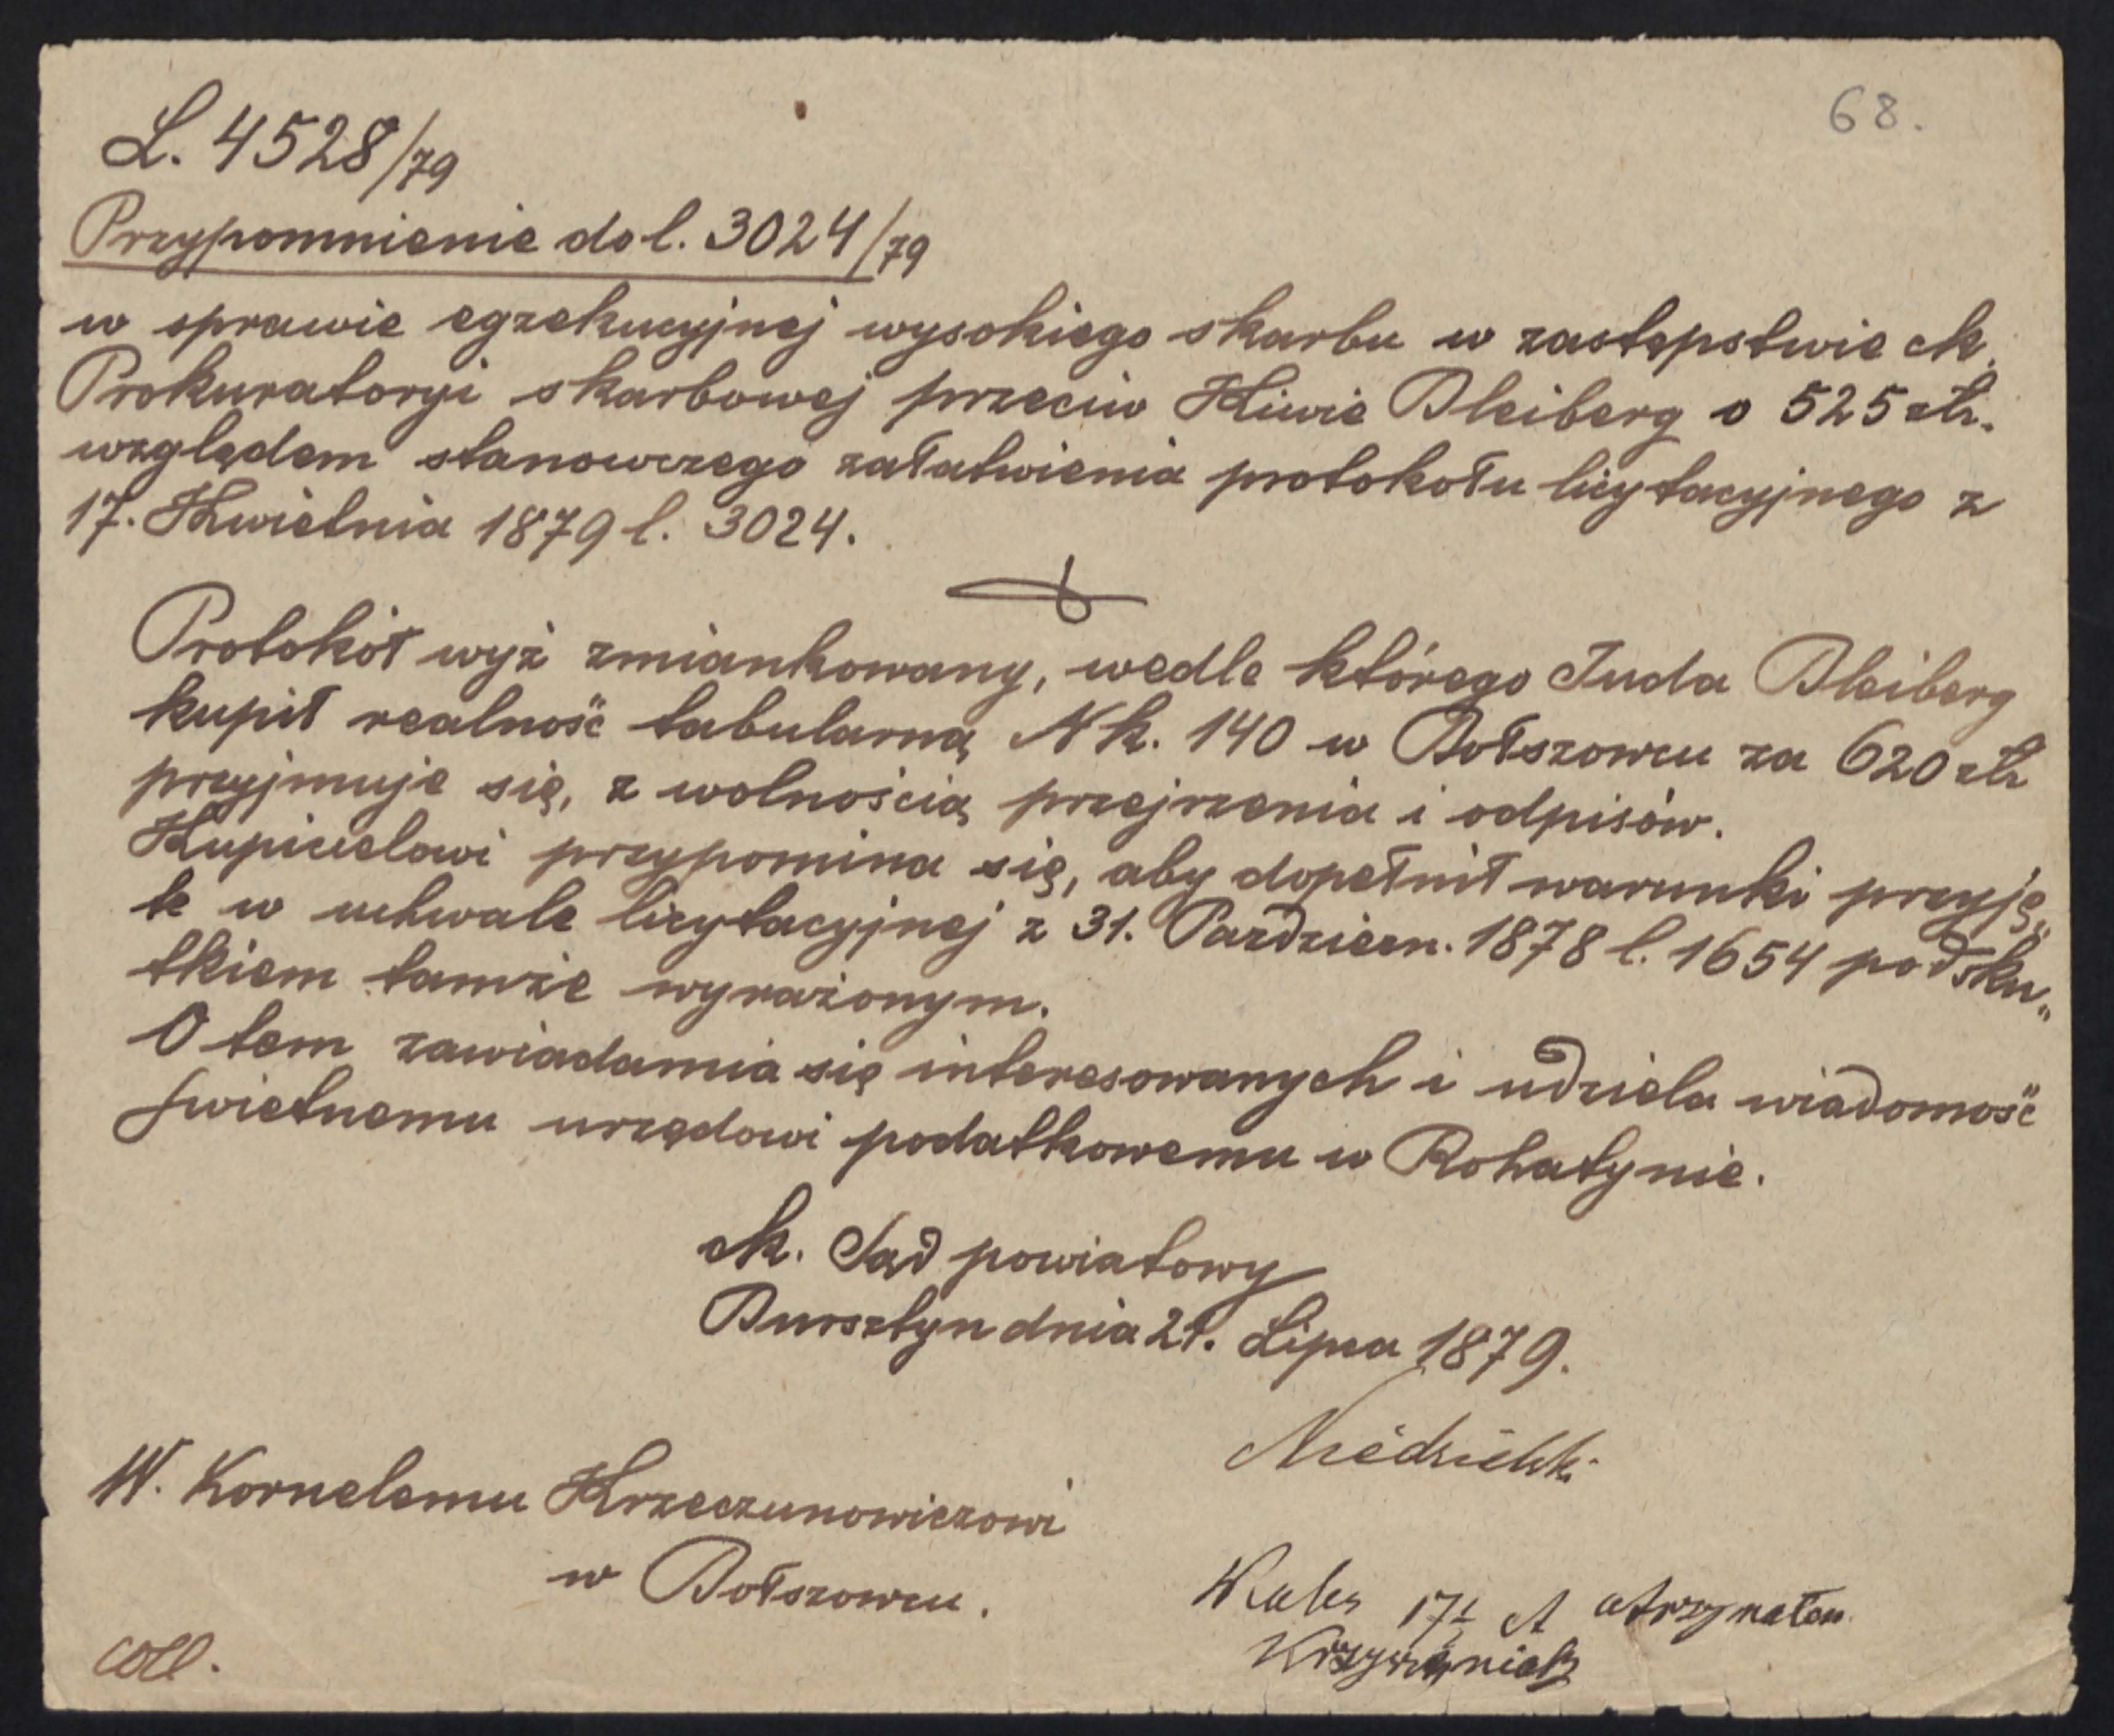 68.
L. 4528/79
Przypomnienie do l. 3024/79
w sprawie egzekucyjnej wysokiego skarbu w zastępstwie ck.
Prokuratoryi skarbowej przeciw Kiwie Bleiberg o 525 złr.
względem stanowczego załatwienia protokołu licytacyjnego z
17. Kwietnia 1879 l. 3024.
Protokół wyż zmiankowany, wedle którego Juda Bleiberg
kupił realność tabularną Nk. 140 w Bołszowcu za 620 złr
przyjmuje się, z wolnością przejrzenia i odpisów.
Kupicielowi przypomina się, aby dopełnił warunki przyję„
te w uchwale licytacyjnej z 31. Październ. 1878 l. 1654 pod sku„
tkiem tamże wyrażonym.
O tem zawiadamia się interesowanych i udziela wiadomość
świetnemu urzędowi podatkowemu w Rohatynie.
ck. Sąd powiatowy
Bursztyn dnia 21. Lipca 1879.
W. Kornelemu Krzeczunowiczowi
w Bołszowcu.
otrzymałem
coll.